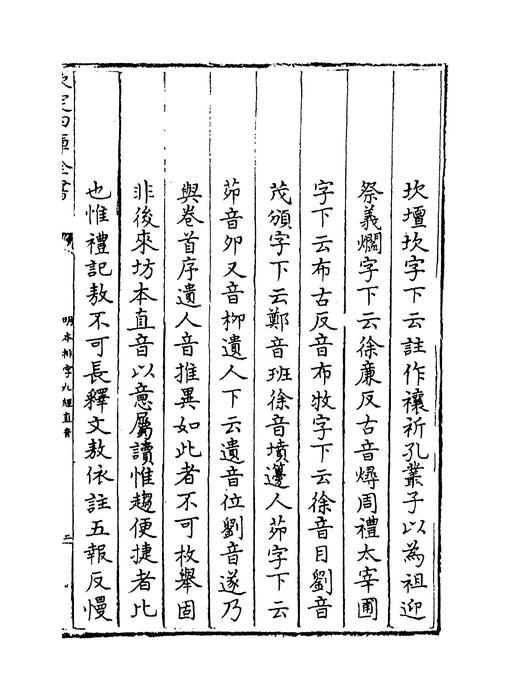 坎壇坎字下云註作禳祈孔叢子以為祖迎
祭義爓字下云徐廉反古音燖周禮太宰圃
字下云布古反音布牧字下云徐音目劉音
茂頒字下云鄭音班徐音墳籩人茆字下云
茆音卯又音柳遺人下云遺音位劉音遂乃
與卷首序遺人音推異如此者不可枚舉固
非後來坊本直音以意屬讀惟趨便捷者比
也惟禮記敖不可長釋文敖依註五報反慢
欽定四庫全書
明本排字九經直音